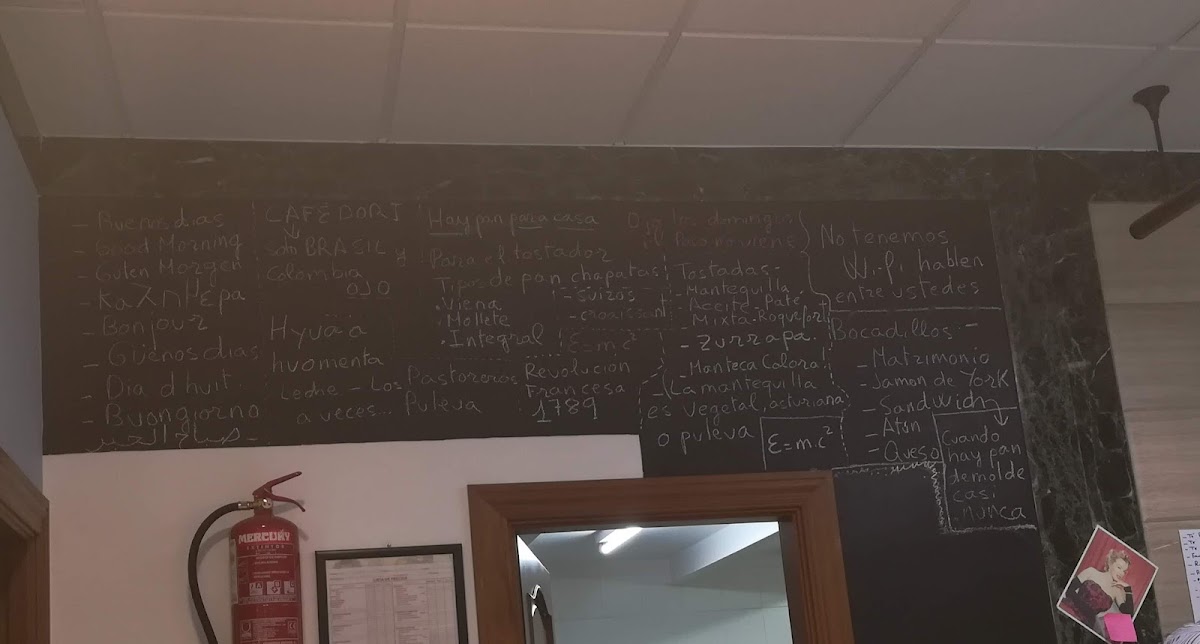 - Buenos dias
- Good Morning
- Guten Morgen
- Καλημέρα
- Bonjour
- Güenos dias
- Dia d huit
- Buongiorno
- صباح الخير
CAFÉ DORI
↓
solo BRASIL y
Colombia
OJO
Hyvää
huomenta
Leche - Los Pastoreros
a veces... Puleva
Hay pan para casa
Para el tostador
Tipos de pan chapatas
. Viena
. Mollete
. Integral
- suizos
- croaissant
E=m·c²
Revolucion
Francesa
1789
Ojo los domingos
Paco no viene
Tostadas.-
- Mantequilla.
- Aceite - Paté
- Mixta - Roquefort
- Zurrapa.
- Manteca Colora!
- (La mantequilla
es vegetal, asturiana
o puleva
E=m.c²
No tenemos
Wifi hablen
entre ustedes
Bocadillos.-
- Matrimonio
- Jamon de York
- Sandwich
- Atún
- Queso
Cuando
hay pan
demolde
casi
nunca
MERCURY